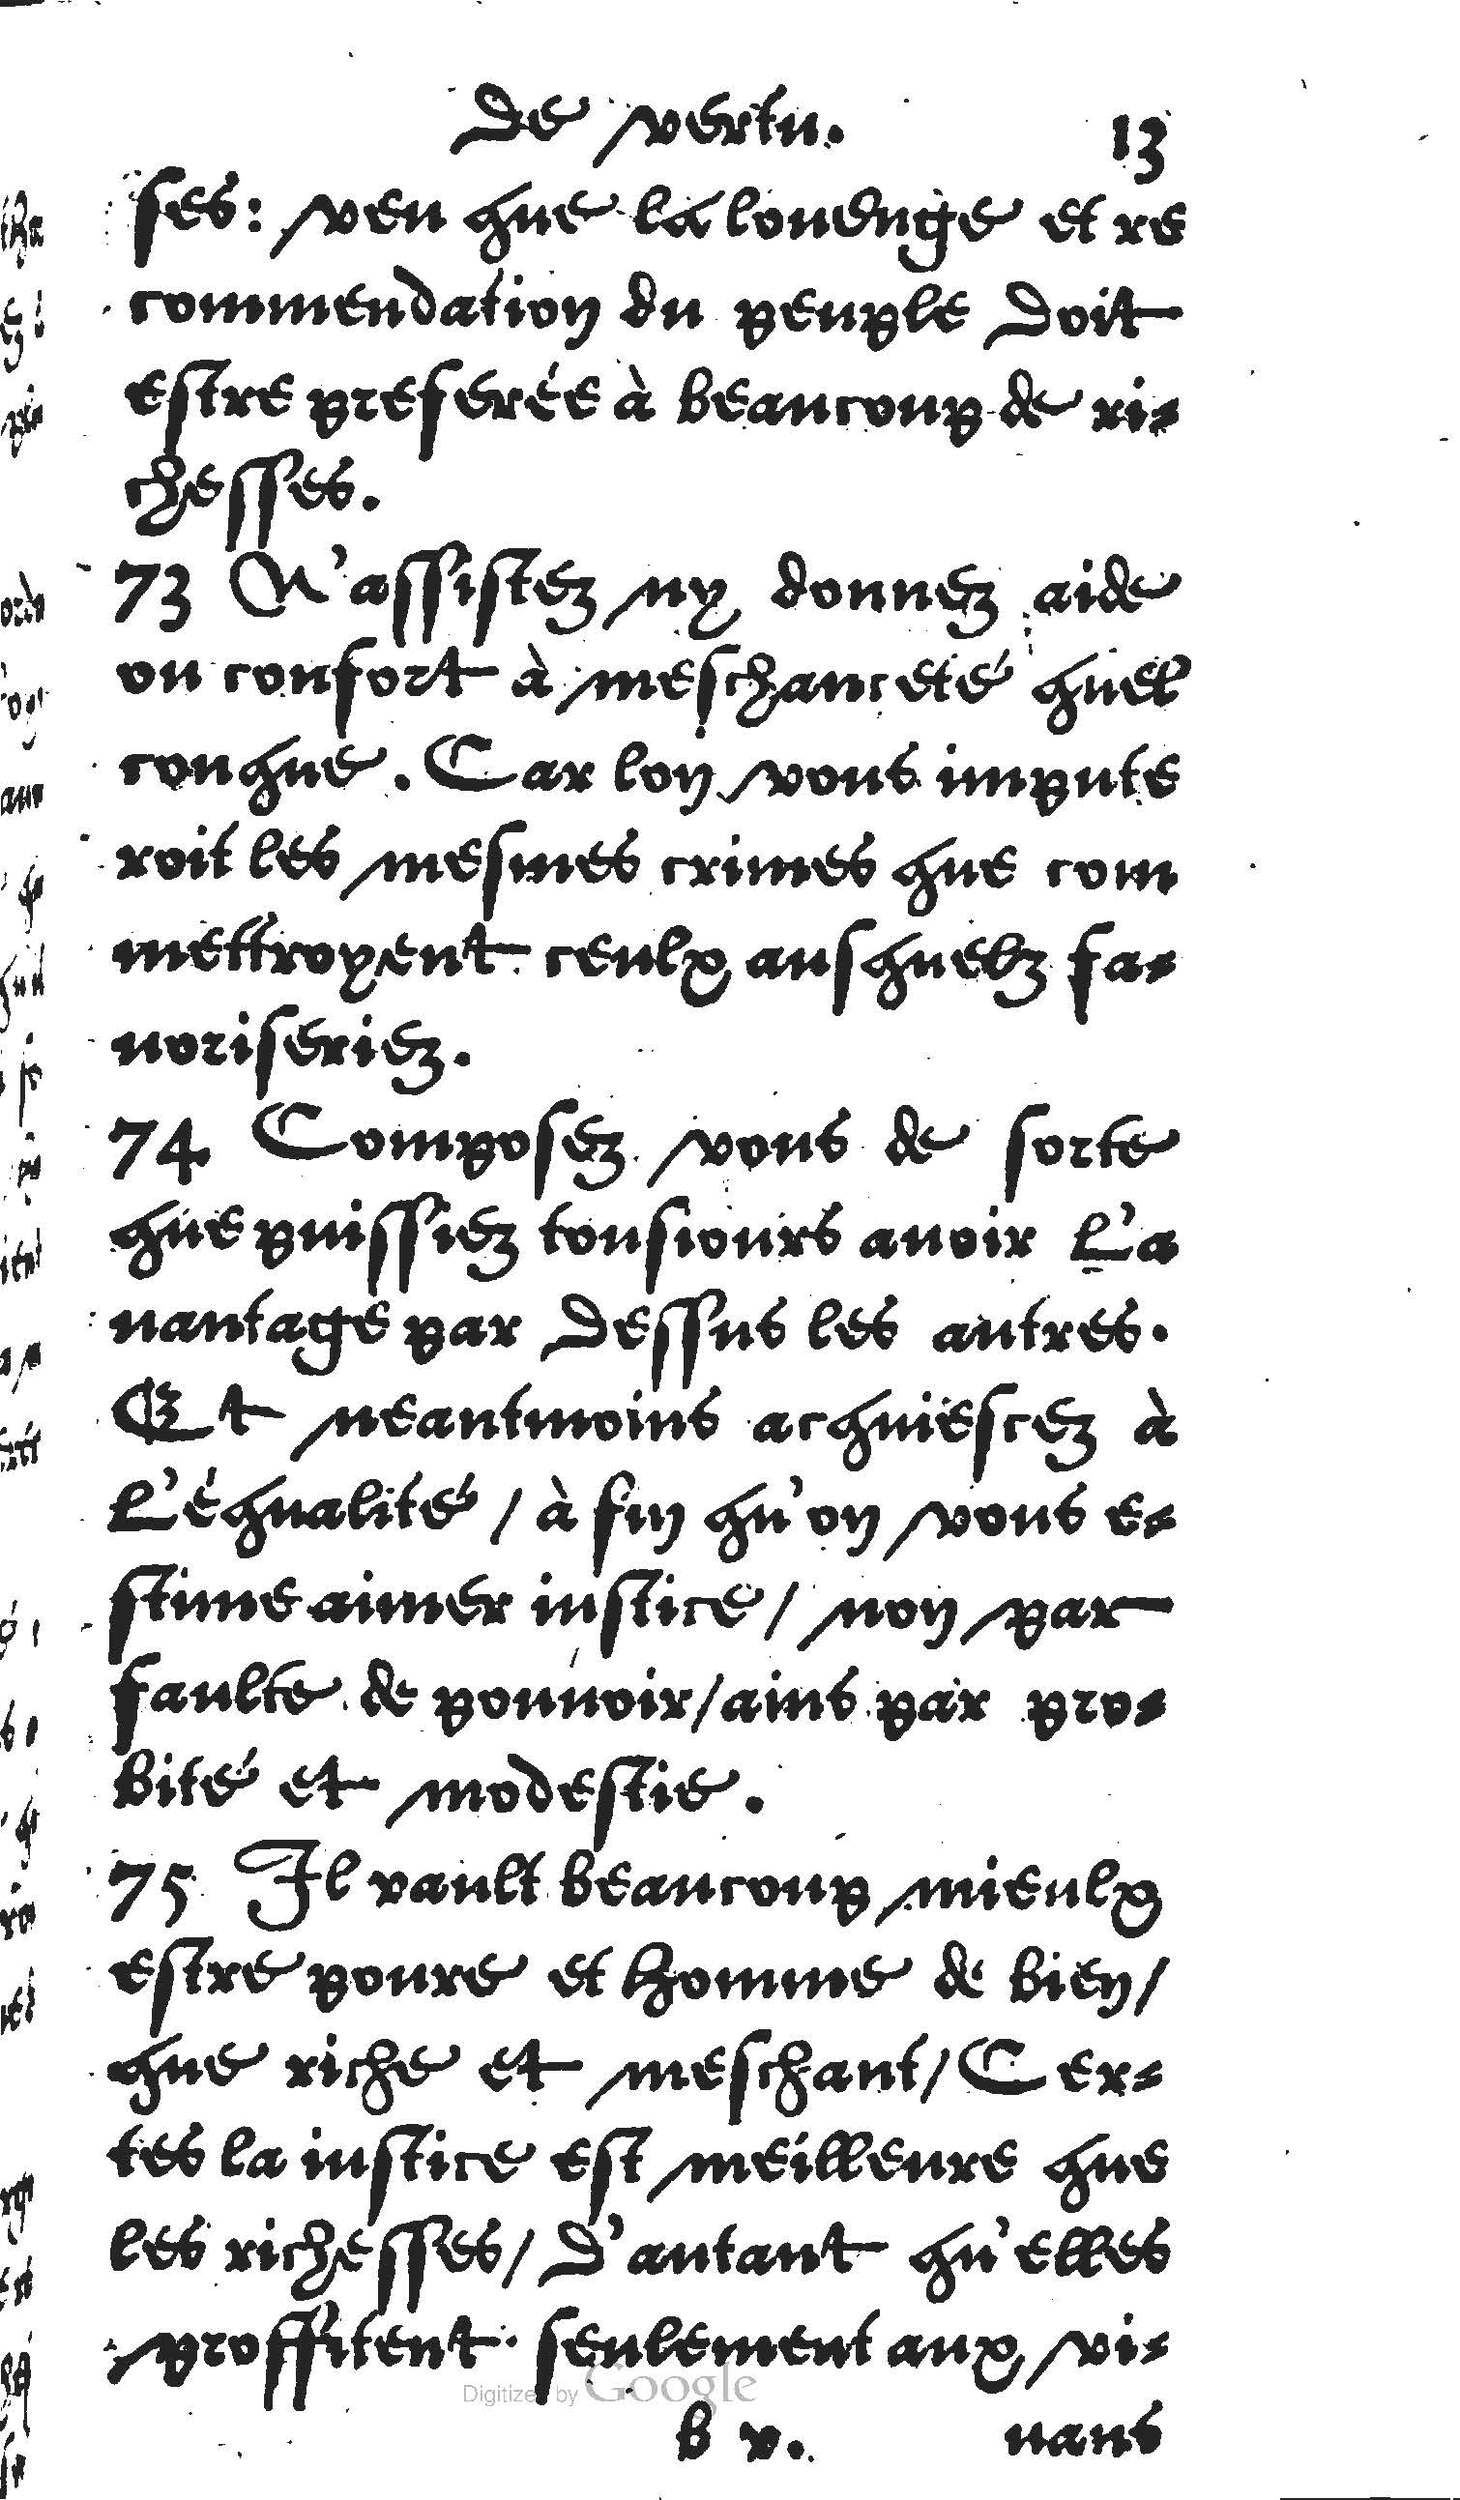 de vertu. 13
ses: veu que la louenge et re
commendation du peuple doit
estre preferée à beaucoup de ri-
chesses.
73 N'assistez ny donnez aide
ou confort à meschanceté quel
conque. Car lon vous impute
roit les mesmes crimes que com
mettroyent ceulx ausquelz fa-
uoriseriez.
74 Composez vous de sorte
que puissiez tousiours auoir l'a
uantage par dessus les autres.
Et neantmoins acquiëscez à
l'équalité / à fin qu'on vous e-
stime aimer iustice / non par
faulte de pouuoir / ains par pro-
bité et modestie.
75 Il vault beaucoup mieulx
estre poure et homme de bien /
que riche et meschant / Cer-
tes la iustice est meilleure que
les richesses / d'autant qu'elles
proffitent seulement aux vi-
Digitized by Google
b v. uans